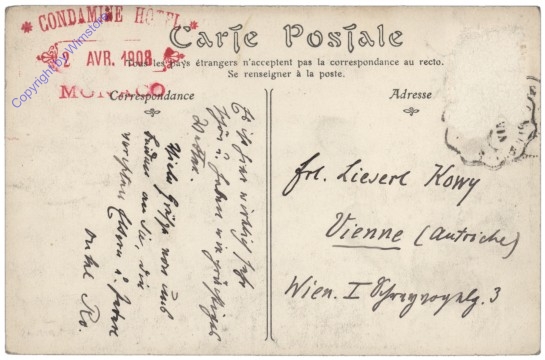 * CONDAMINE HOTEL *
2 AVR. 1908
MONACO
Copyright by Wimstore
Carte Postale
Tous les pays étrangers n'acceptent pas la correspondance au recto.
Se renseigner à la poste.
Correspondance
Adresse
Es ist hier wirklich sehr
schön u. haben wir prächtiges
Wetter.
Viele Grüße von uns
beiden an Sie, die
Eltern u.
Onkel Ro.
Frl. Lieserl Kowy
Vienne (Autriche)
Wien. I 3